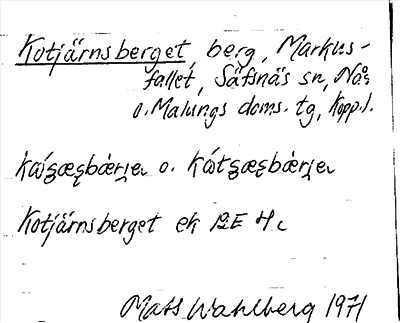 Kotjärnsberget, berg, Markus-
fallet, Säfsnäs sn, Nås
o. Malungs doms. tg, Kopp.l.
o.
Kotjärnsberget ek BE 4c
Mats Wahlberg 1971